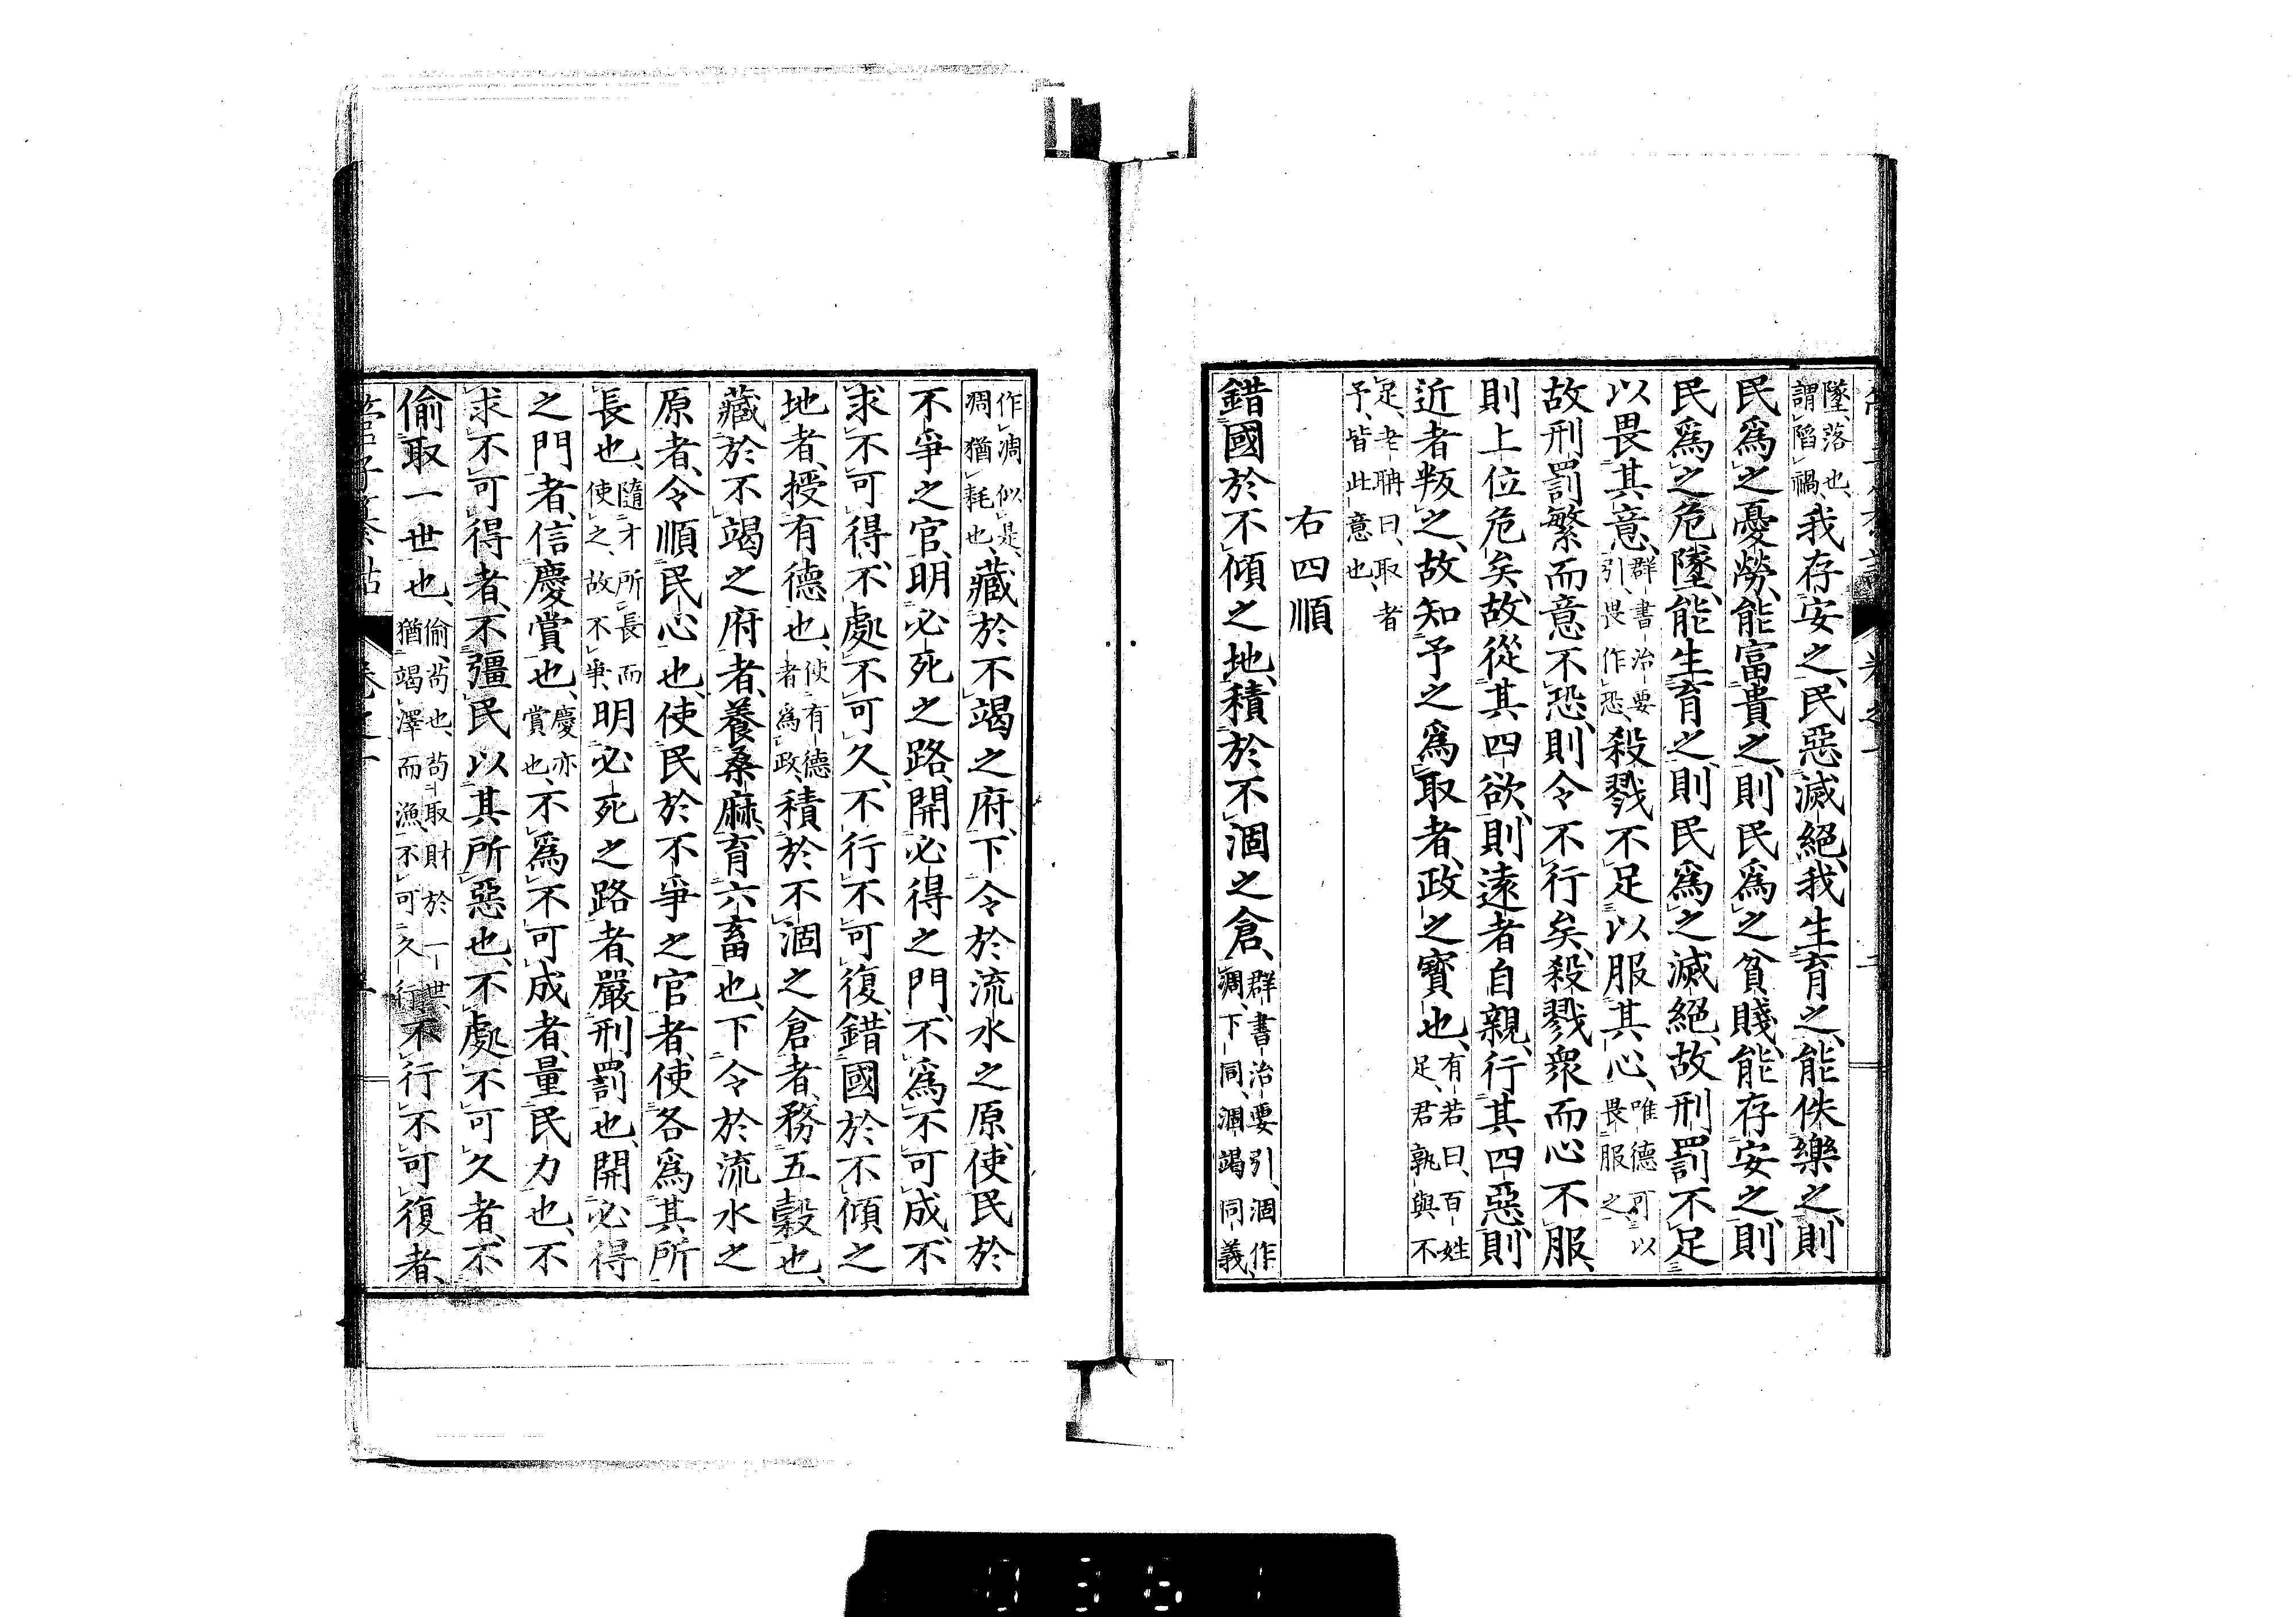 墜、落也、
謂陷禍、我存安之、民惡滅絕、我生育之、能佚樂之、則
民爲之憂勞、能富貴之、則民爲之貧賤、能存安之、則
民爲之危墜、能生育之、則民爲之滅絕、故刑罰不足
以畏其意、群書治要引、畏作恐、殺戮不足以服其心、唯德可以畏服之
故刑罰繁而意不恐、則令不行矣、殺戮衆而心不服、
則上位危矣、故從其四欲、則遠者自親、行其四惡、則
近者叛之、故知予之爲取者、政之寶也、有若曰、百姓足、君孰與不
足、老聃曰、取者予、皆此意也、
右四順
錯國於不傾之地、積於不涸之倉、群書治要引、涸作凋、下同、涸竭同義、
作凋似是、凋猶耗也、藏於不竭之府、下令於流水之原、使民於
不爭之官、明必死之路、開必得之門、不爲不可成、不
求不可得、不處不可久、不行不可復、錯國於不傾之
地者、授有德也、使有德者爲政、積於不涸之倉者、務五穀也、
藏於不竭之府者、養桑麻、育六畜也、下令於流水之
原者、令順民心也、使民於不爭之官者、使各爲其所
長也、隨才所長而使之、故不爭、明必死之路者、嚴刑罰也、開必得
之門者、信慶賞也、慶亦賞也、不爲不可成者、量民力也、不
求不可得者、不彊民以其所惡也、不處不可久者、不
偷取一世也、偷、苟也、苟取財於一世、猶竭澤而漁、不可久行、不行不可復者、
管子纂詁 卷之一